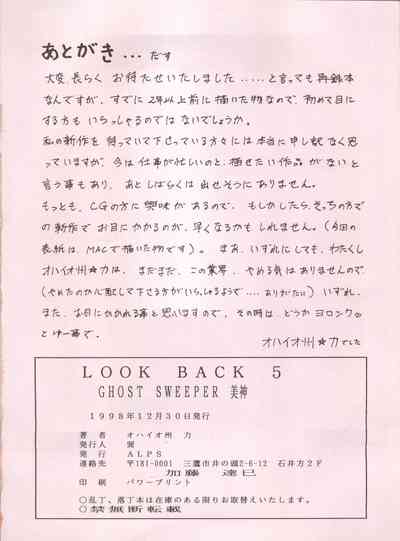 あとがき ・・・だす
大変、長らく お待たせいたしました・・・・・と言っても再録本
なんですが、すでに2年以上前に描いた物なので、初めて目に
する方も いらっしゃるのでは ないでしょうか。
私の新作を 待っていて下さっている方々には本当に申し訳なく思
っていますが、今は仕事が忙しいのと、描きたい作品 がないと
言う事もあり、あとしばらくは 出せそうにありません。
もっとも、CGの方に興味があるので、もしかしたら、そっちの方で
の新作でお目にかかるのが、早くなるかもしれません。(今回の
表紙は、MACで描いた物です)。まあ、いずれにしても、わたくし
オハイオ州☆力は、まだまだ、この業界、やめる気はありませんので
(やめたのか心配して下さる方がいらっしゃるようで・・・・ありがたい)いずれ、
また、お目にかかれる事と思いますので、その時は、どうかヨロシク。
と ゆー事で。
オハイオ州☆力でした
LOOK BACK 5
GHOST SWEEPER 美神
1998年12月30日発行
著者 オハイオ州 力
発行人 巽
発行 ALPS
連絡先 〒181-0001 三鷹市井の頭2-6-12 石井方2F
加藤 達巳
印刷 パワープリント
○乱丁、落丁本は在庫のある限りお取替えいたします。
○禁無断転載